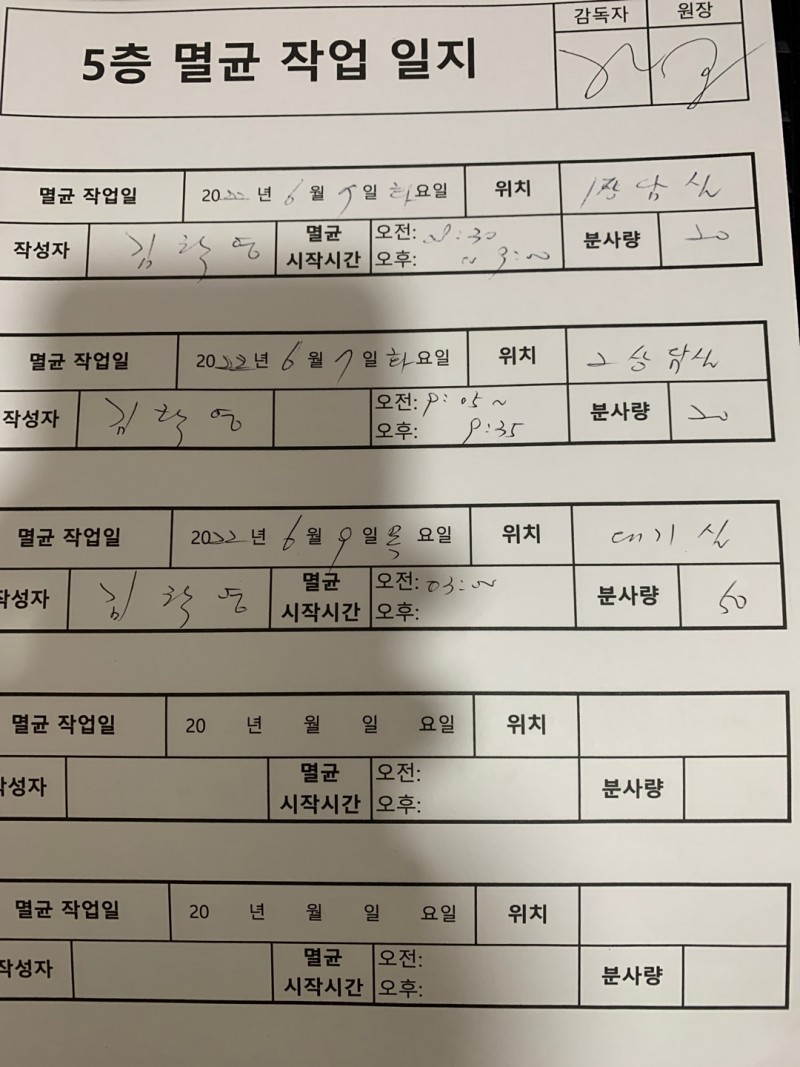 감독자 원장
5층 멸균 작업 일지
멸균 작업일 2022 년 6 월 7 일 화요일 위치 1상담실
작성자 김학영 멸균 시작시간 오전: 8:30 오후: ~ 9:00 분사량 20
멸균 작업일 2022년 6 월 7 일 화요일 위치 2상담실
작성자 김학영 오전: 9:05 ~ 오후: 9:35 분사량 20
멸균 작업일 2022년 6월 9일 목요일 위치 대기실
작성자 김학영 멸균 시작시간 오전: 03:00 오후: 분사량 50
멸균 작업일 20 년 월 일 요일 위치
작성자 멸균 시작시간 오전: 오후: 분사량
멸균 작업일 20 년 월 일 요일 위치
작성자 멸균 시작시간 오전: 오후: 분사량